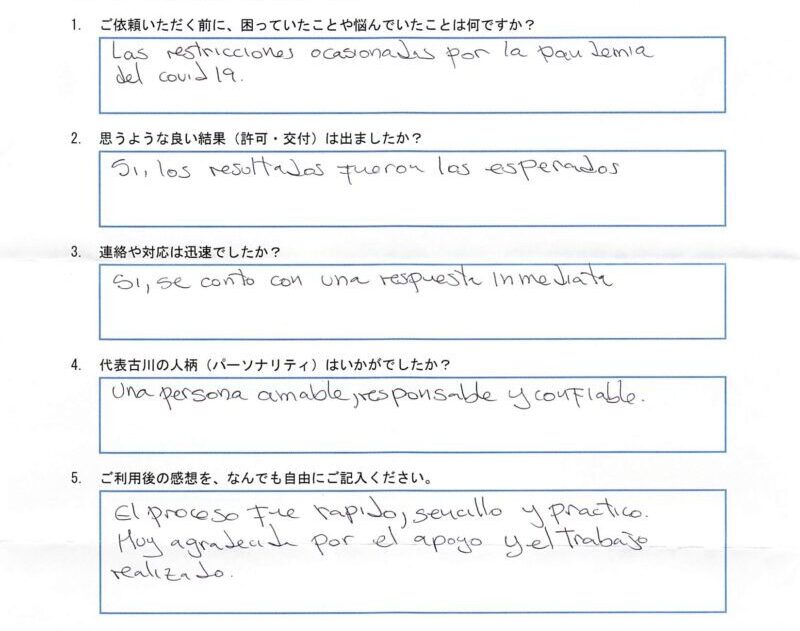 1. ご依頼いただく前に、困っていたことや悩んでいたことは何ですか？
Las restricciones ocasionadas por la pandemia
del covid 19.
2. 思うような良い結果（許可・交付）は出ましたか？
Si, los resultados fueron los esperados
3. 連絡や対応は迅速でしたか？
Si, se conto con una respuesta inmediata
4. 代表古川の人柄（パーソナリティ）はいかがでしたか？
Una persona amable, responsable y confiable.
5. ご利用後の感想を、なんでも自由にご記入ください。
El proceso fue rapido, sencillo y practico.
Muy agradecida por el apoyo y el trabajo
realizado.